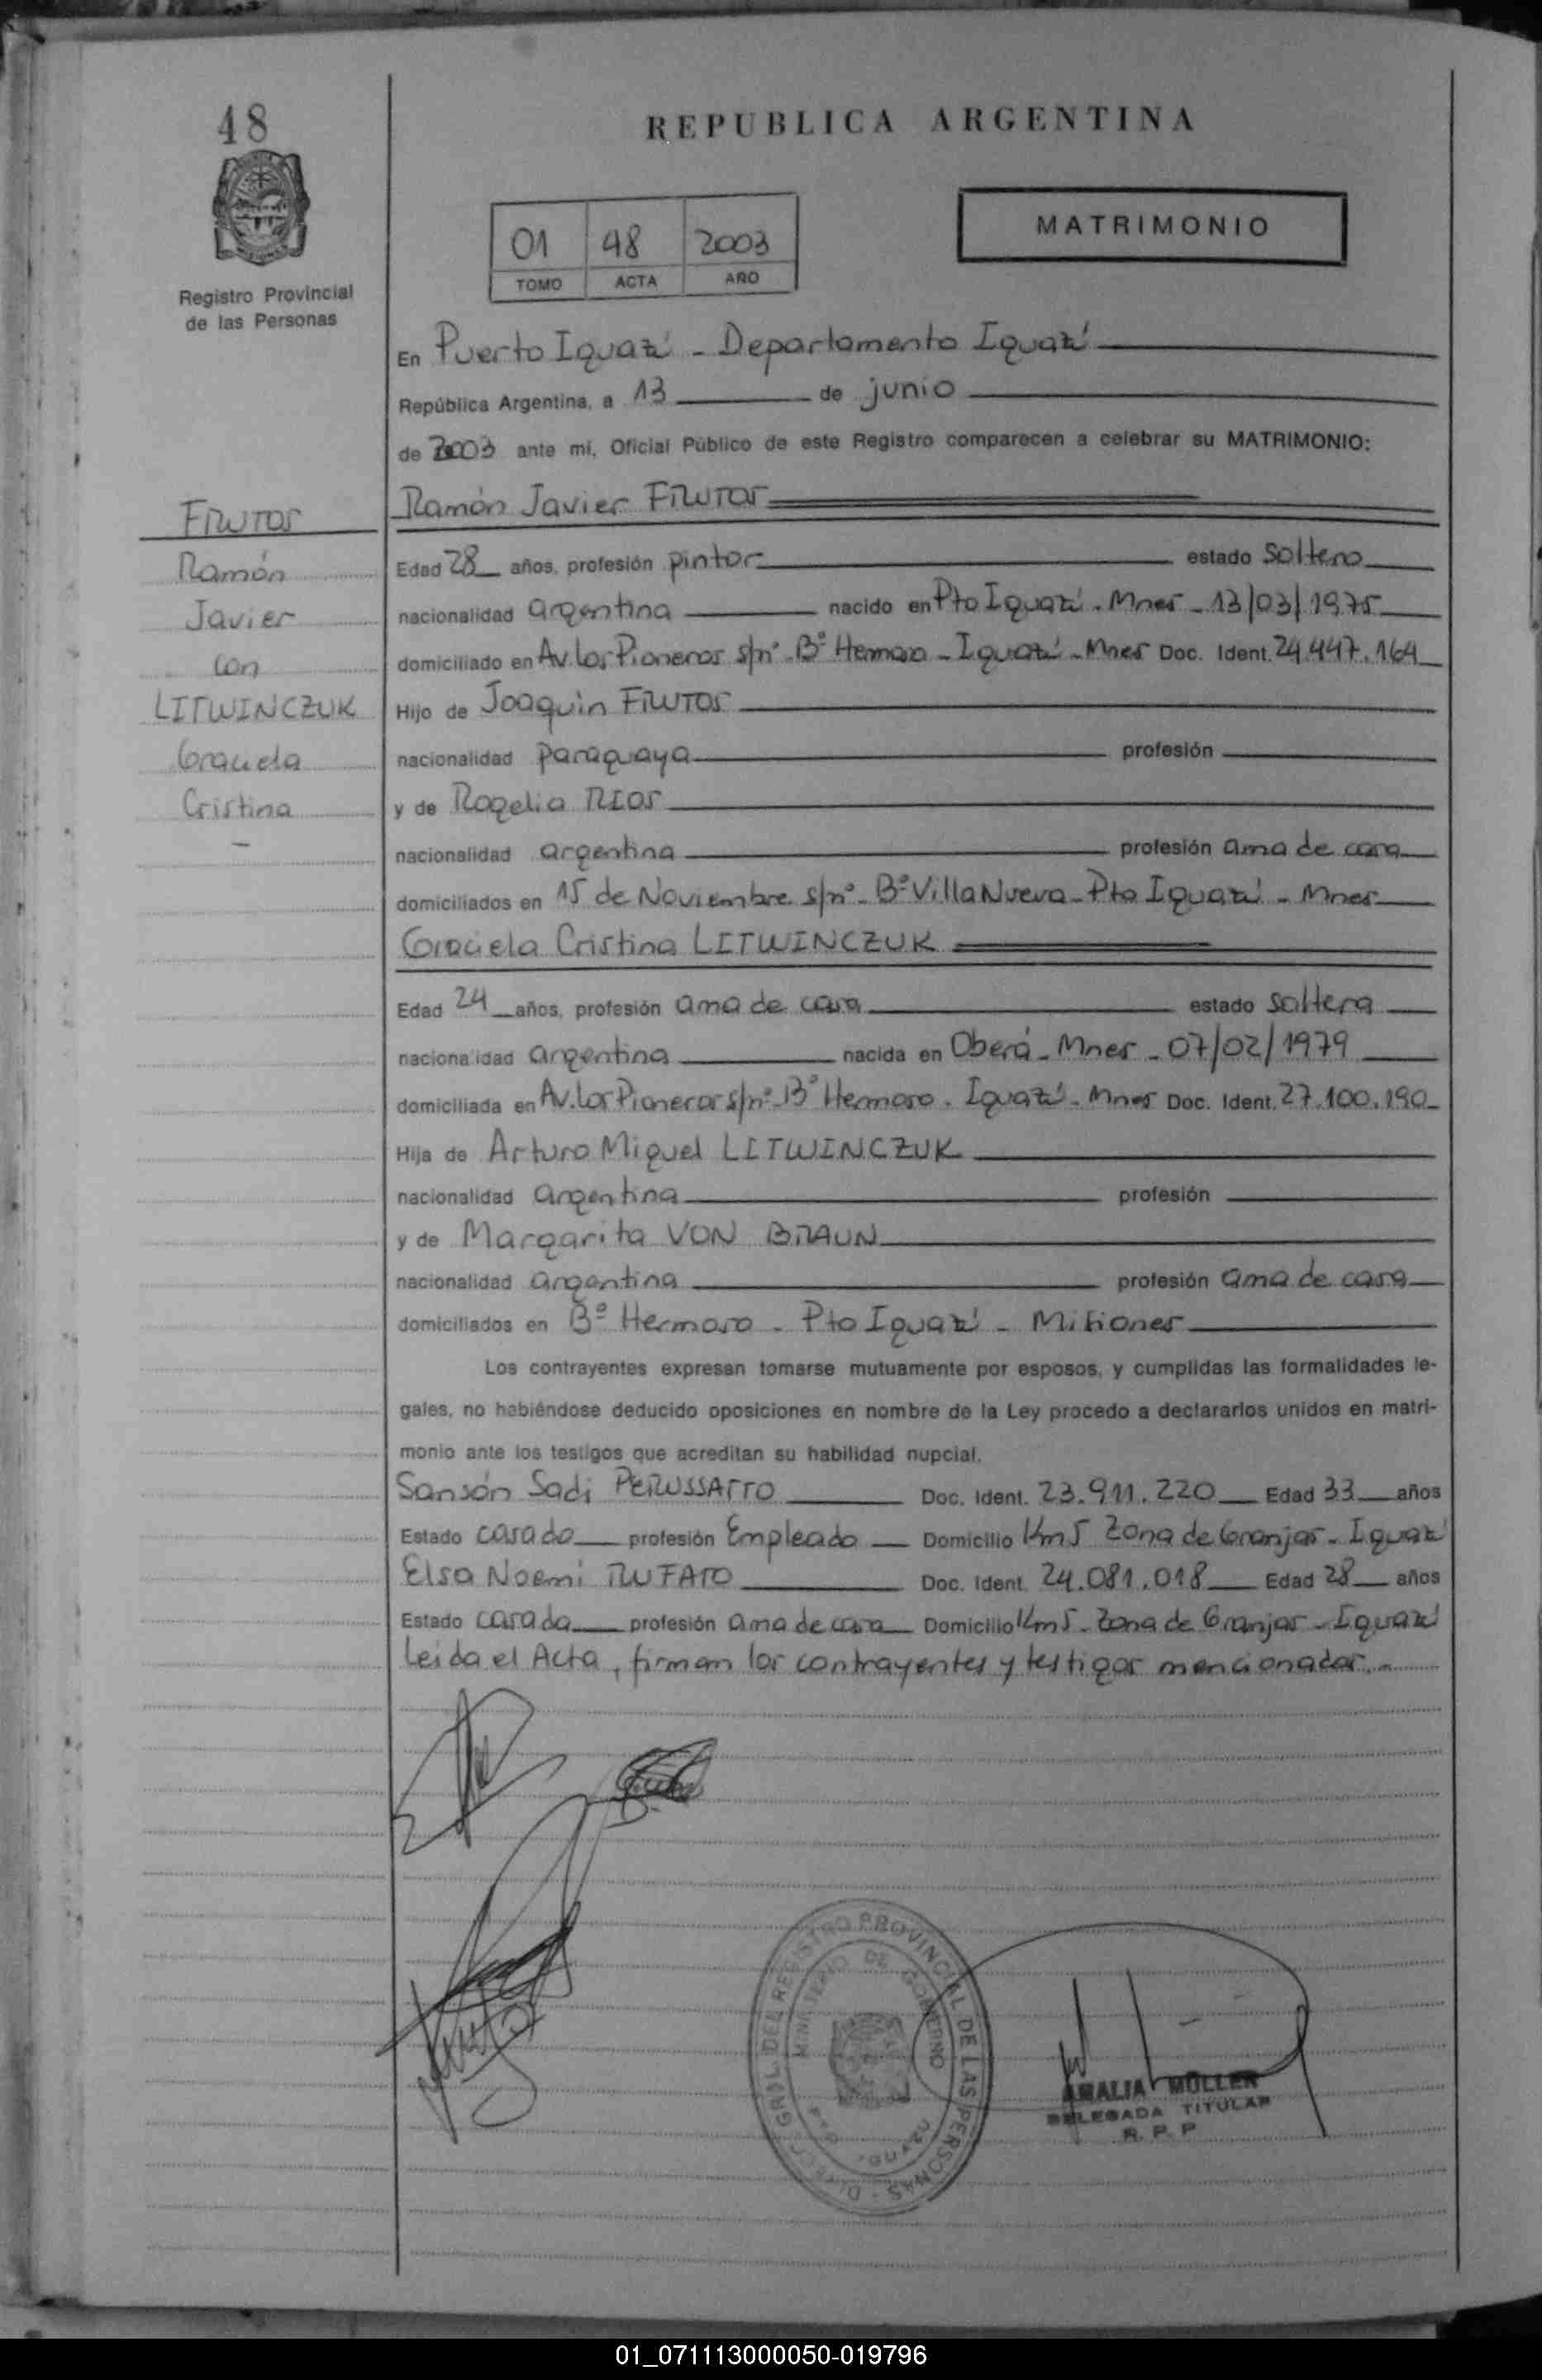 48
REPUBLICA ARGENTINA
01 48 2003
TOMO ACTA AÑO
MATRIMONIO
Registro Provincial
de las Personas
En Puerto Iguazú - Departamento Iguazú
República Argentina, a 13 de junio
de 2003 ante mi, Oficial Público de este Registro comparecen a celebrar su MATRIMONIO:
FRUTOS
Ramón
Javier
con
LITWINCZUK
Graciela
Cristina
-
Ramón Javier FRUTOS
Edad 28 años, profesión pintor estado soltero
nacionalidad argentina nacido en Pto Iguazú - Mnes - 13/03/1975
domiciliado en Av. Los Pioneros s/nº - Bº Hermoso - Iguazú - Mnes Doc. Ident. 24.447.164
Hijo de Joaquin FRUTOS
nacionalidad paraguaya profesión
y de Rogelia RIOS
nacionalidad argentina profesión ama de casa
domiciliados en 15 de Noviembre s/nº - Bº Villa Nueva - Pto Iguazú - Mnes
Graciela Cristina LITWINCZUK
Edad 24 años, profesión ama de casa estado soltera
nacionalidad argentina nacida en Oberá - Mnes - 07/02/1979
domiciliada en Av. Los Pioneros s/nº - Bº Hermoso - Iguazú - Mnes Doc. Ident. 27.100.190
Hija de Arturo Miguel LITWINCZUK
nacionalidad argentina profesión
y de Margarita VON BRAUN
nacionalidad argentina profesión ama de casa
domiciliados en Bº Hermoso - Pto Iguazú - Misiones
Los contrayentes expresan tomarse mutuamente por esposos, y cumplidas las formalidades le-
gales, no habiéndose deducido oposiciones en nombre de la Ley procedo a declararlos unidos en matri-
monio ante los testigos que acreditan su habilidad nupcial.
Sansón Sadi PERUSSATTO Doc. Ident. 23.911.220 Edad 33 años
Estado casado profesión Empleado Domicilio Km 5 Zona de Granjas - Iguazú
Elsa Noemi RUFATO Doc. Ident. 24.081.018 Edad 28 años
Estado casada profesión ama de casa Domicilio Km 5 - Zona de Granjas - Iguazú
Leida el Acta, firman los contrayentes y testigos mencionados.-
GRAL. DEL REGISTRO PROVINCIAL DE LAS PERSONAS
MINISTERIO DE GOBIERNO
AMALIA MÜLLER
DELEGADA TITULAR
R. P. P
01_071113000050-019796